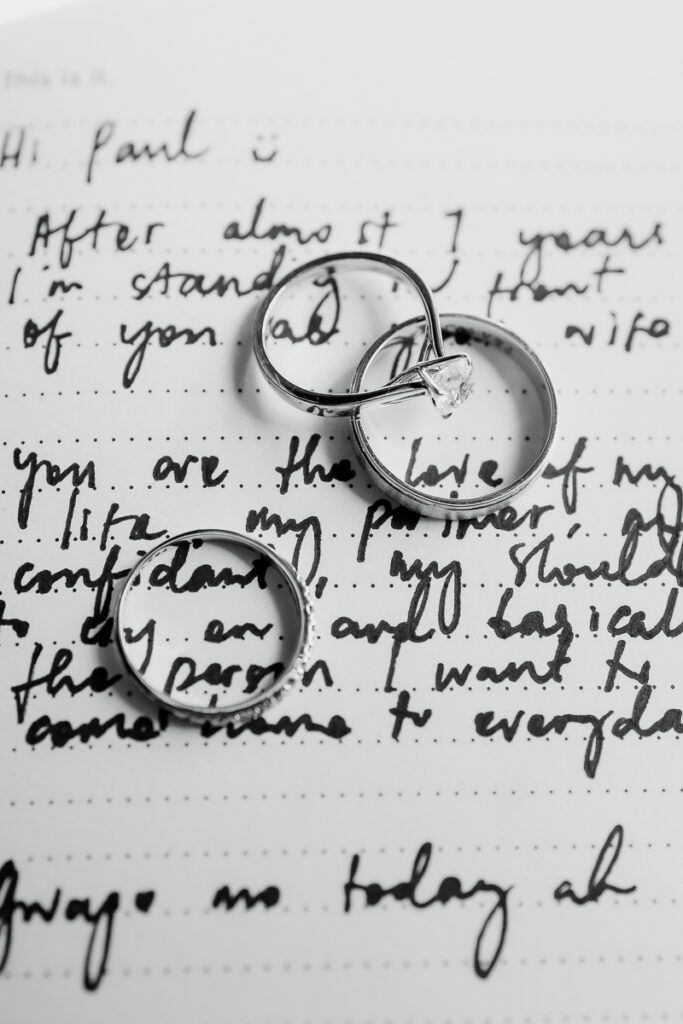 this is it.
Hi Paul ü
After almost 7 years
I'm standing in front
of you as wife
you are the love of my
life, my partner, my
confidant, my should
to cry on and basical
the person I want to
come home to everyda
Gwapo mo today ah